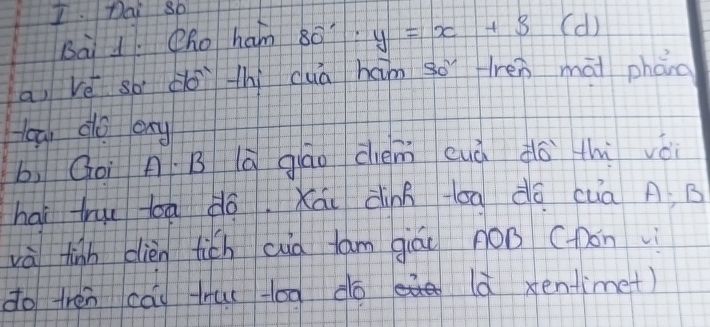 I. Đại số
Bài 1: Cho hàm số: y = x + 3 (d)
a) Vẽ sơ đồ thị của hàm số trên mặt phẳng
toạ độ oxy
b) Gọi A. B là giao điểm của đồ thị với
hai trục toạ độ. Xác định toạ độ của A; B
và tính diện tích của tam giác AOB (Đơn vị
đo trên các trục toạ độ là xentimet)